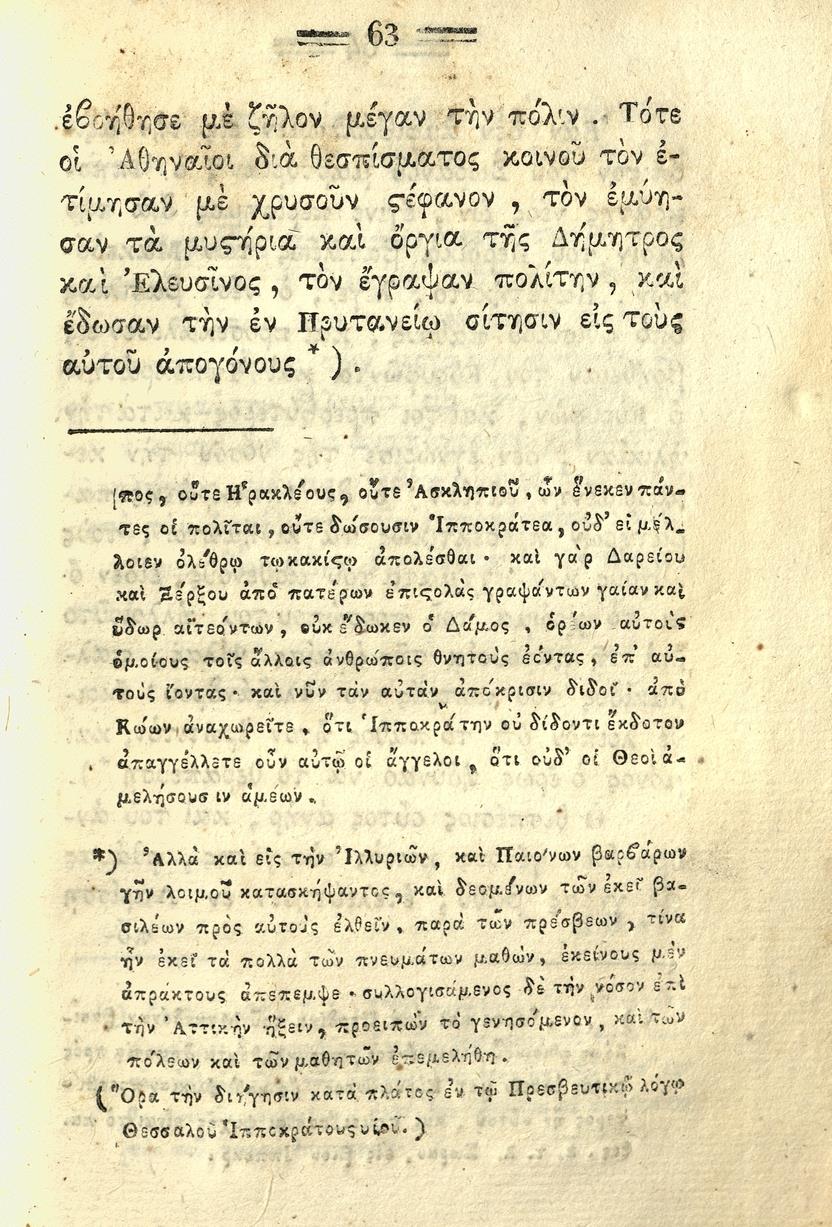 63
ἐβοήθησε μὲ ζῆλον μέγαν τὴν πόλιν . Τότε
οἱ Ἀθηναῖοι διὰ θεσπίσματος κοινοῦ τὸν ἐ-
τίμησαν μὲ χρυσοῦν ϛέφανον , τὸν ἐμύη-
σαν τὰ μυϛήρια καὶ ὄργια τῆς Δήμητρος
καὶ Ἐλευσῖνος , τὸν ἔγραψαν πολίτην , καὶ
ἔδωσαν τὴν ἐν Πρυτανείῳ σίτησιν εἰς τοὺς
αὐτοῦ ἀπογόνους * ) .
πος , οὔτε Ἡρακλέους , οὔτε Ἀσκληπιοῦ , ὧν ἕνεκεν πάν-
τες οἱ πολῖται , οὔτε δώσουσιν Ἱπποκράτεα , οὐδ' εἰ μέλ-
λοιεν ὀλέθρῳ τῳκακίϛῳ ἀπολέσθαι · καὶ γὰρ Δαρείου
καὶ Ξέρξου ἀπὸ πατέρων ἐπιϛολὰς γραψάντων γαίαν καὶ
ὕδωρ αἰτεόντων , οὐκ ἔδωκεν ὁ Δάμος , ὁρέων αὐτοὺς
ὁμοίους τοῖς ἄλλοις ἀνθρώποις θνητοὺς ἐόντας , ἐπ' αὐ-
τοὺς ἴοντας · καὶ νῦν τὰν αὐτὰν ἀπόκρισιν διδοῖ · ἀπὸ
Κώων ἀναχωρεῖτε , ὅτι Ἱπποκράτην οὐ δίδοντι ἔκδοτον
ἀπαγγέλλετε οὖν αὐτῷ οἱ ἄγγελοι , ὅτι οὐδ' οἱ Θεοὶ ἀ-
μελήσουσιν ἁμέων .
*) Ἀλλὰ καὶ εἰς τὴν Ἰλλυριῶν , καὶ Παιόνων βαρβάρων
γῆν λοιμοῦ κατασκήψαντος , καὶ δεομένων τῶν ἐκεῖ βα-
σιλέων πρὸς αὐτοὺς ἐλθεῖν , παρὰ τῶν πρέσβεων , τίνα
ἦν ἐκεῖ τὰ πολλὰ τῶν πνευμάτων μαθών , ἐκείνους μὲν
ἀπράκτους ἀπεπεμψε · συλλογισάμενος δὲ τὴν νόσον ἐπὶ
τὴν Ἀττικὴν ἥξειν , προειπὼν τὸ γενησόμενον , καὶ τῶν
πόλεων καὶ τῶν μαθητῶν ἐπεμελήθη .
( Ὅρα τὴν διήγησιν κατὰ πλάτος ἐν τῷ Πρεσβευτικῷ λόγῳ
Θεσσαλοῦ Ἱπποκράτους υἱοῦ . )